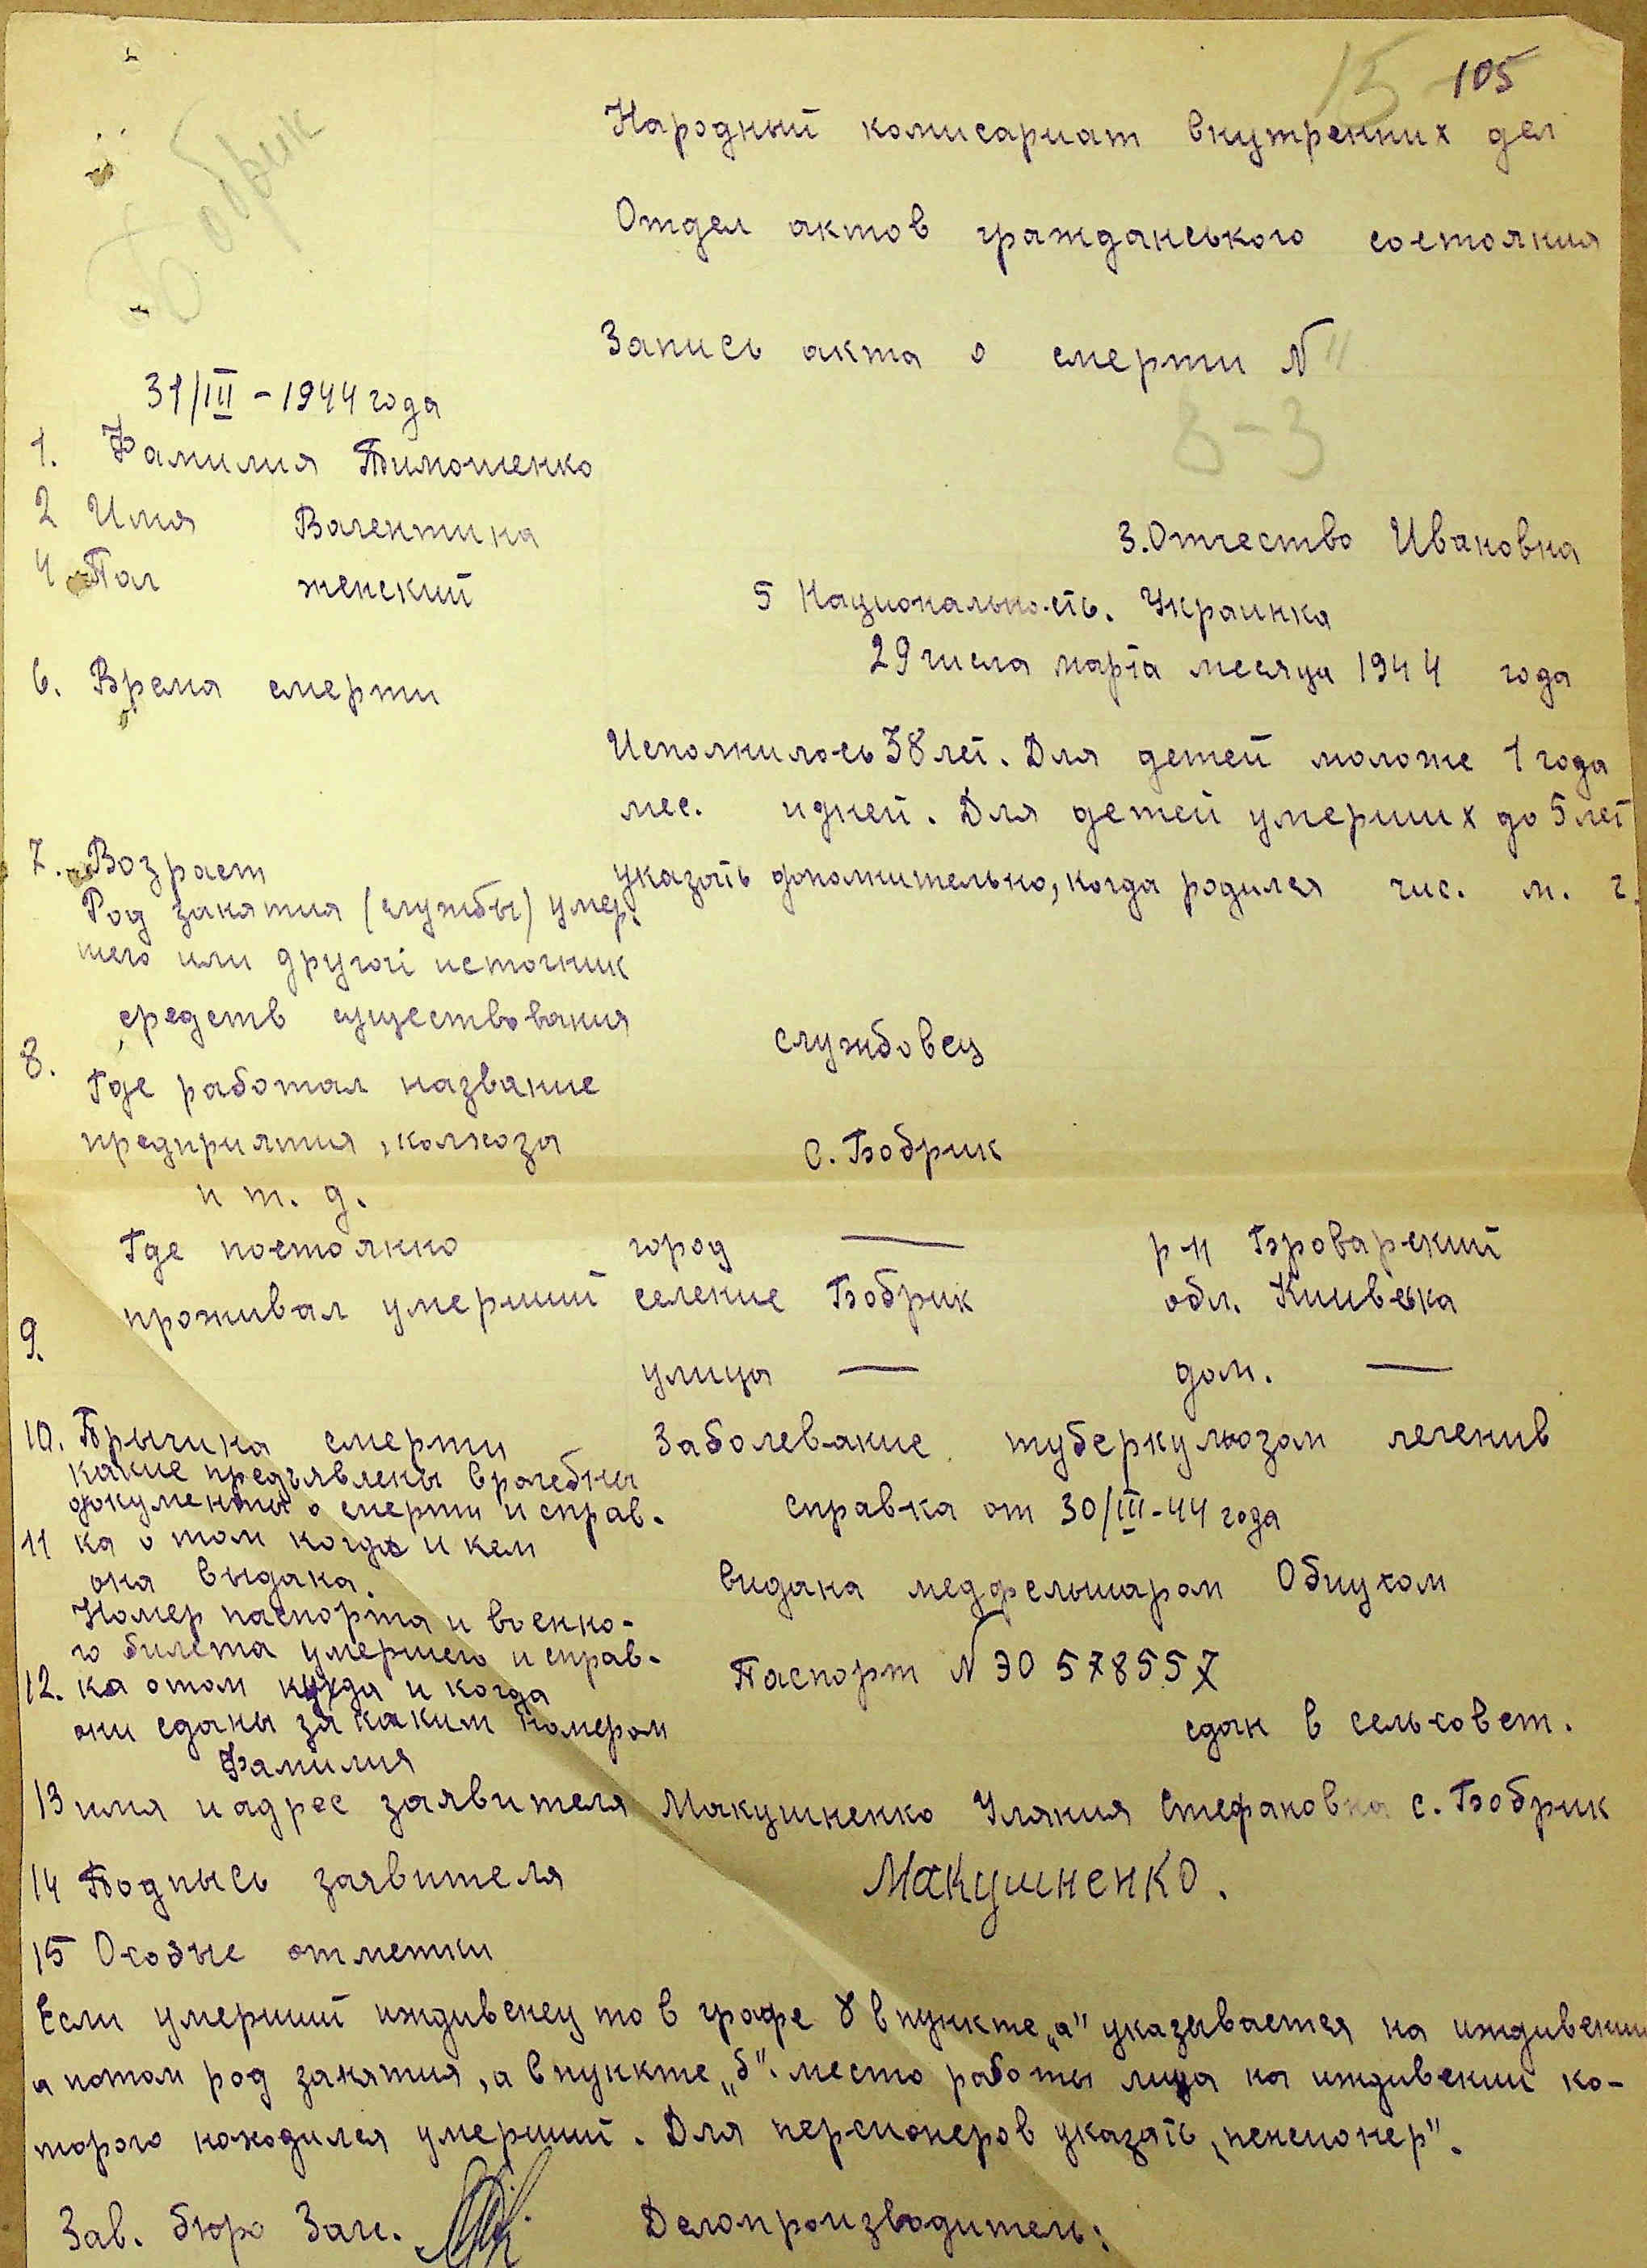 15 105
Бобрик
Народный комисариат внутренних дел
Отдел актов гражданського состояния
Запись акта о смерти N 11
8-3
31/III - 1944 года
1. Фамилия Тимошенко
2 Имя Валентина 3. Отчество Ивановна
4 Пол женский 5 Национальность. Украинка
6. Время смерти 29 числа марта месяца 1944 года
Исполнилось 38 лет. Для детей моложе 1 года
мес. и дней. Для детей умерших до 5 лет
7. Возраст указать дополнительно, когда родился чис. м. г.
Род занятия (службы) умер.
шего или другой источник
средств существования службовец
8. Где работал название
предприятия, колхоза с. Бобрик
и т. д.
Где постоянно город — р-н Броварский
проживал умерший селение Бобрик обл. Киивська
9. улица — дом. —
10. Прычина смерти Заболевание туберкулозом легенив
какие предъявлены врачебны
документы о смерти и справ- справка от 30/III-44 года
11 ка о том когда и кем
она выдана. видана медфельшаром Обиухом
Номер паспорта и военно-
го билета умершего и справ- Паспорт N ЭО 578557
12. ка о том куда и когда
они сданы за каким номером сдан в сельсовет.
Фамилия
13 имя и адрес заявителя Макушненко Уляния Стефановна с. Бобрик
14 Подпысь заявителя Макушненко.
15 Особые отметки
Если умерший иждивенец то в графе 8 в пункте „а" указывается на иждивении
а потом род занятия, а в пункте „б". место работы лица на иждивении ко-
торого находился умерший. Для персионеров указать „пенсионер".
Зав. бюро Загс. Делопроизводитель: